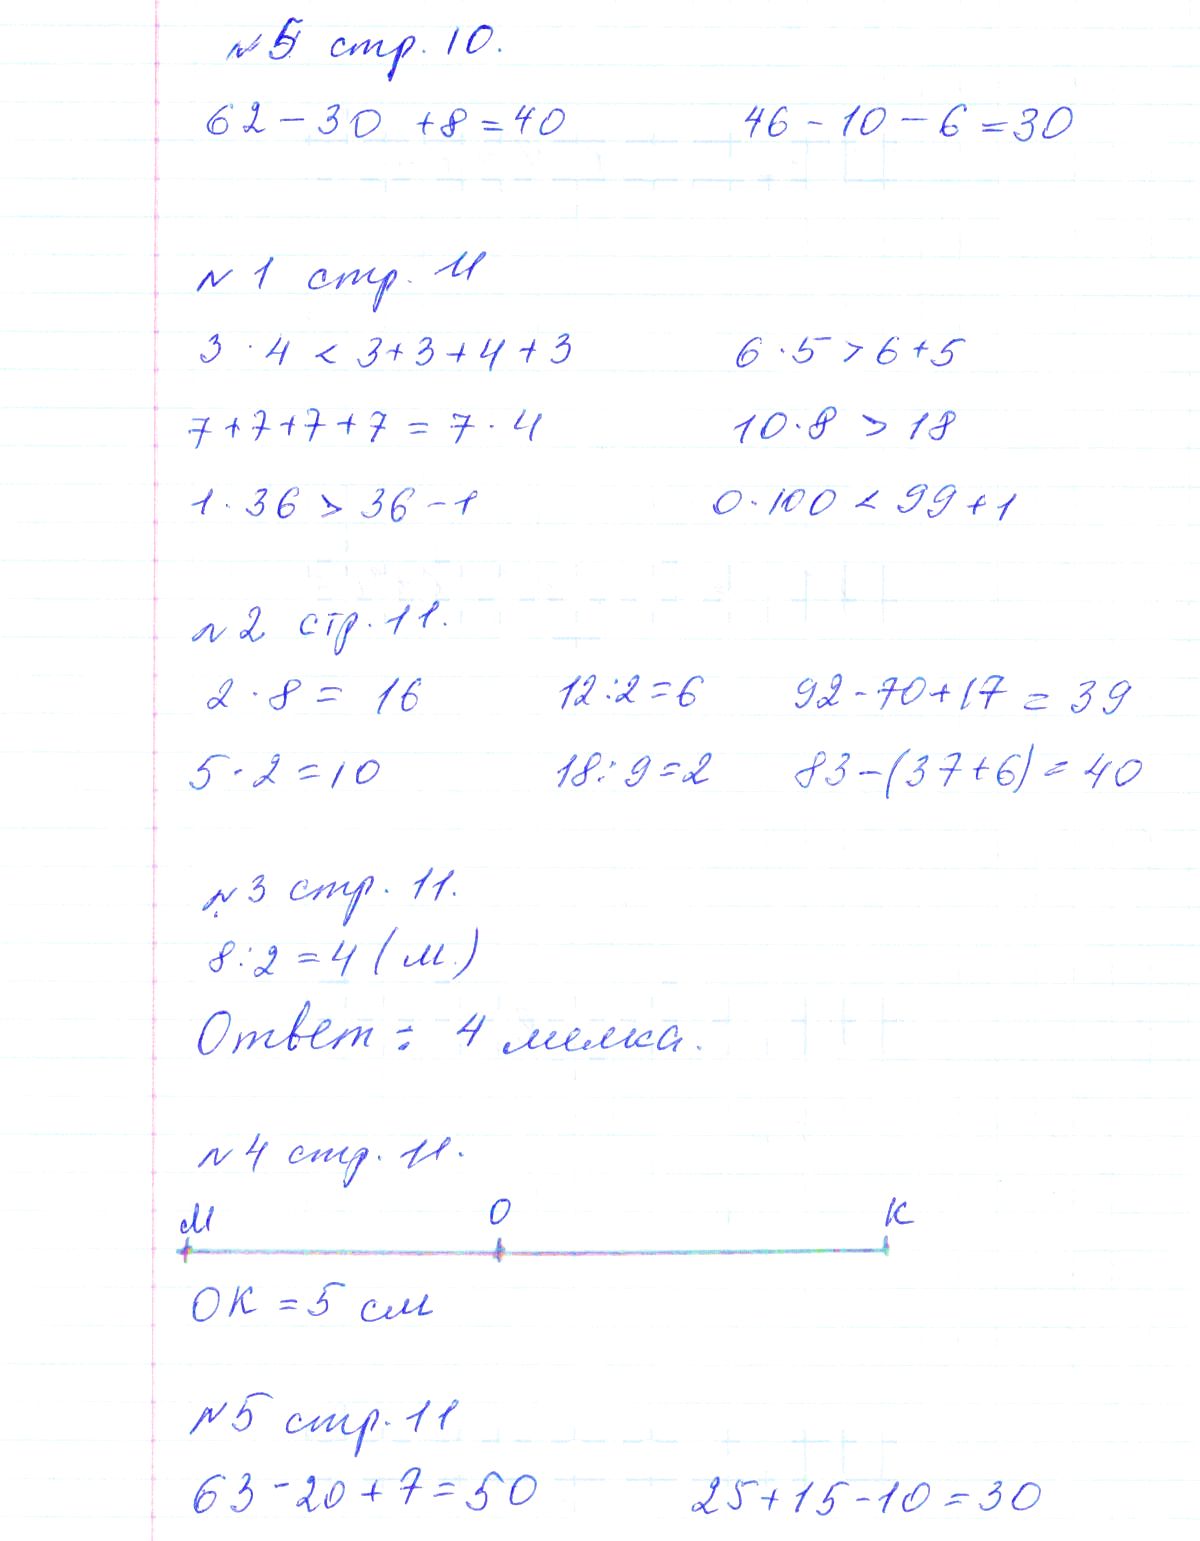 № 5 стр. 10.
62 - 30 + 8 = 40 46 - 10 - 6 = 30
№ 1 стр. 11
3 · 4 < 3 + 3 + 4 + 3 6 · 5 > 6 + 5
7 + 7 + 7 + 7 = 7 · 4 10 · 8 > 18
1 · 36 > 36 - 1 0 · 100 < 99 + 1
№ 2 стр. 11.
2 · 8 = 16 12 : 2 = 6 92 - 70 + 17 = 39
5 · 2 = 10 18 : 9 = 2 83 - (37 + 6) = 40
№ 3 стр. 11.
8 : 2 = 4 (м.)
Ответ : 4 мелка.
№ 4 стр. 11.
М О К
ОК = 5 см
№ 5 стр. 11
63 - 20 + 7 = 50 25 + 15 - 10 = 30